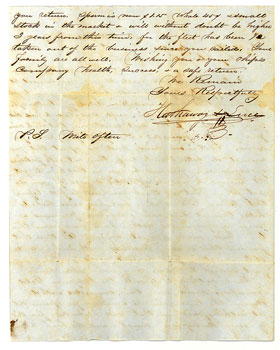 your return. Sperm is now $1.25 Whale 45¢ & small
stock in the market & will without doubt be higher
3 years from this time. for the fleet has been
taken out of the business since you sailed. Your
family are all well. Wishing you & your ships
Company health, success, & a safe return
We Remain
Yours Respectfully
Hathaway & Luce
P.S. Write often